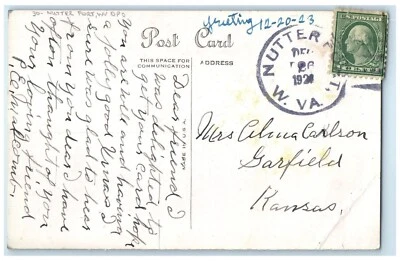 30- NUTTER FORT, WV DPO
Greeting 12-20-23
Post Card
THIS SPACE FOR
COMMUNICATION
ADDRESS
NUTTER
DEC
W. VA.
Dear friend I
was delighted to
get your card. hope
you are well and having
a jolly good Xmas I
sure was glad to hear
from you dear I have
often thought of you
Your loving friend
Mrs Alma Carlson
Garfield
Kansas,